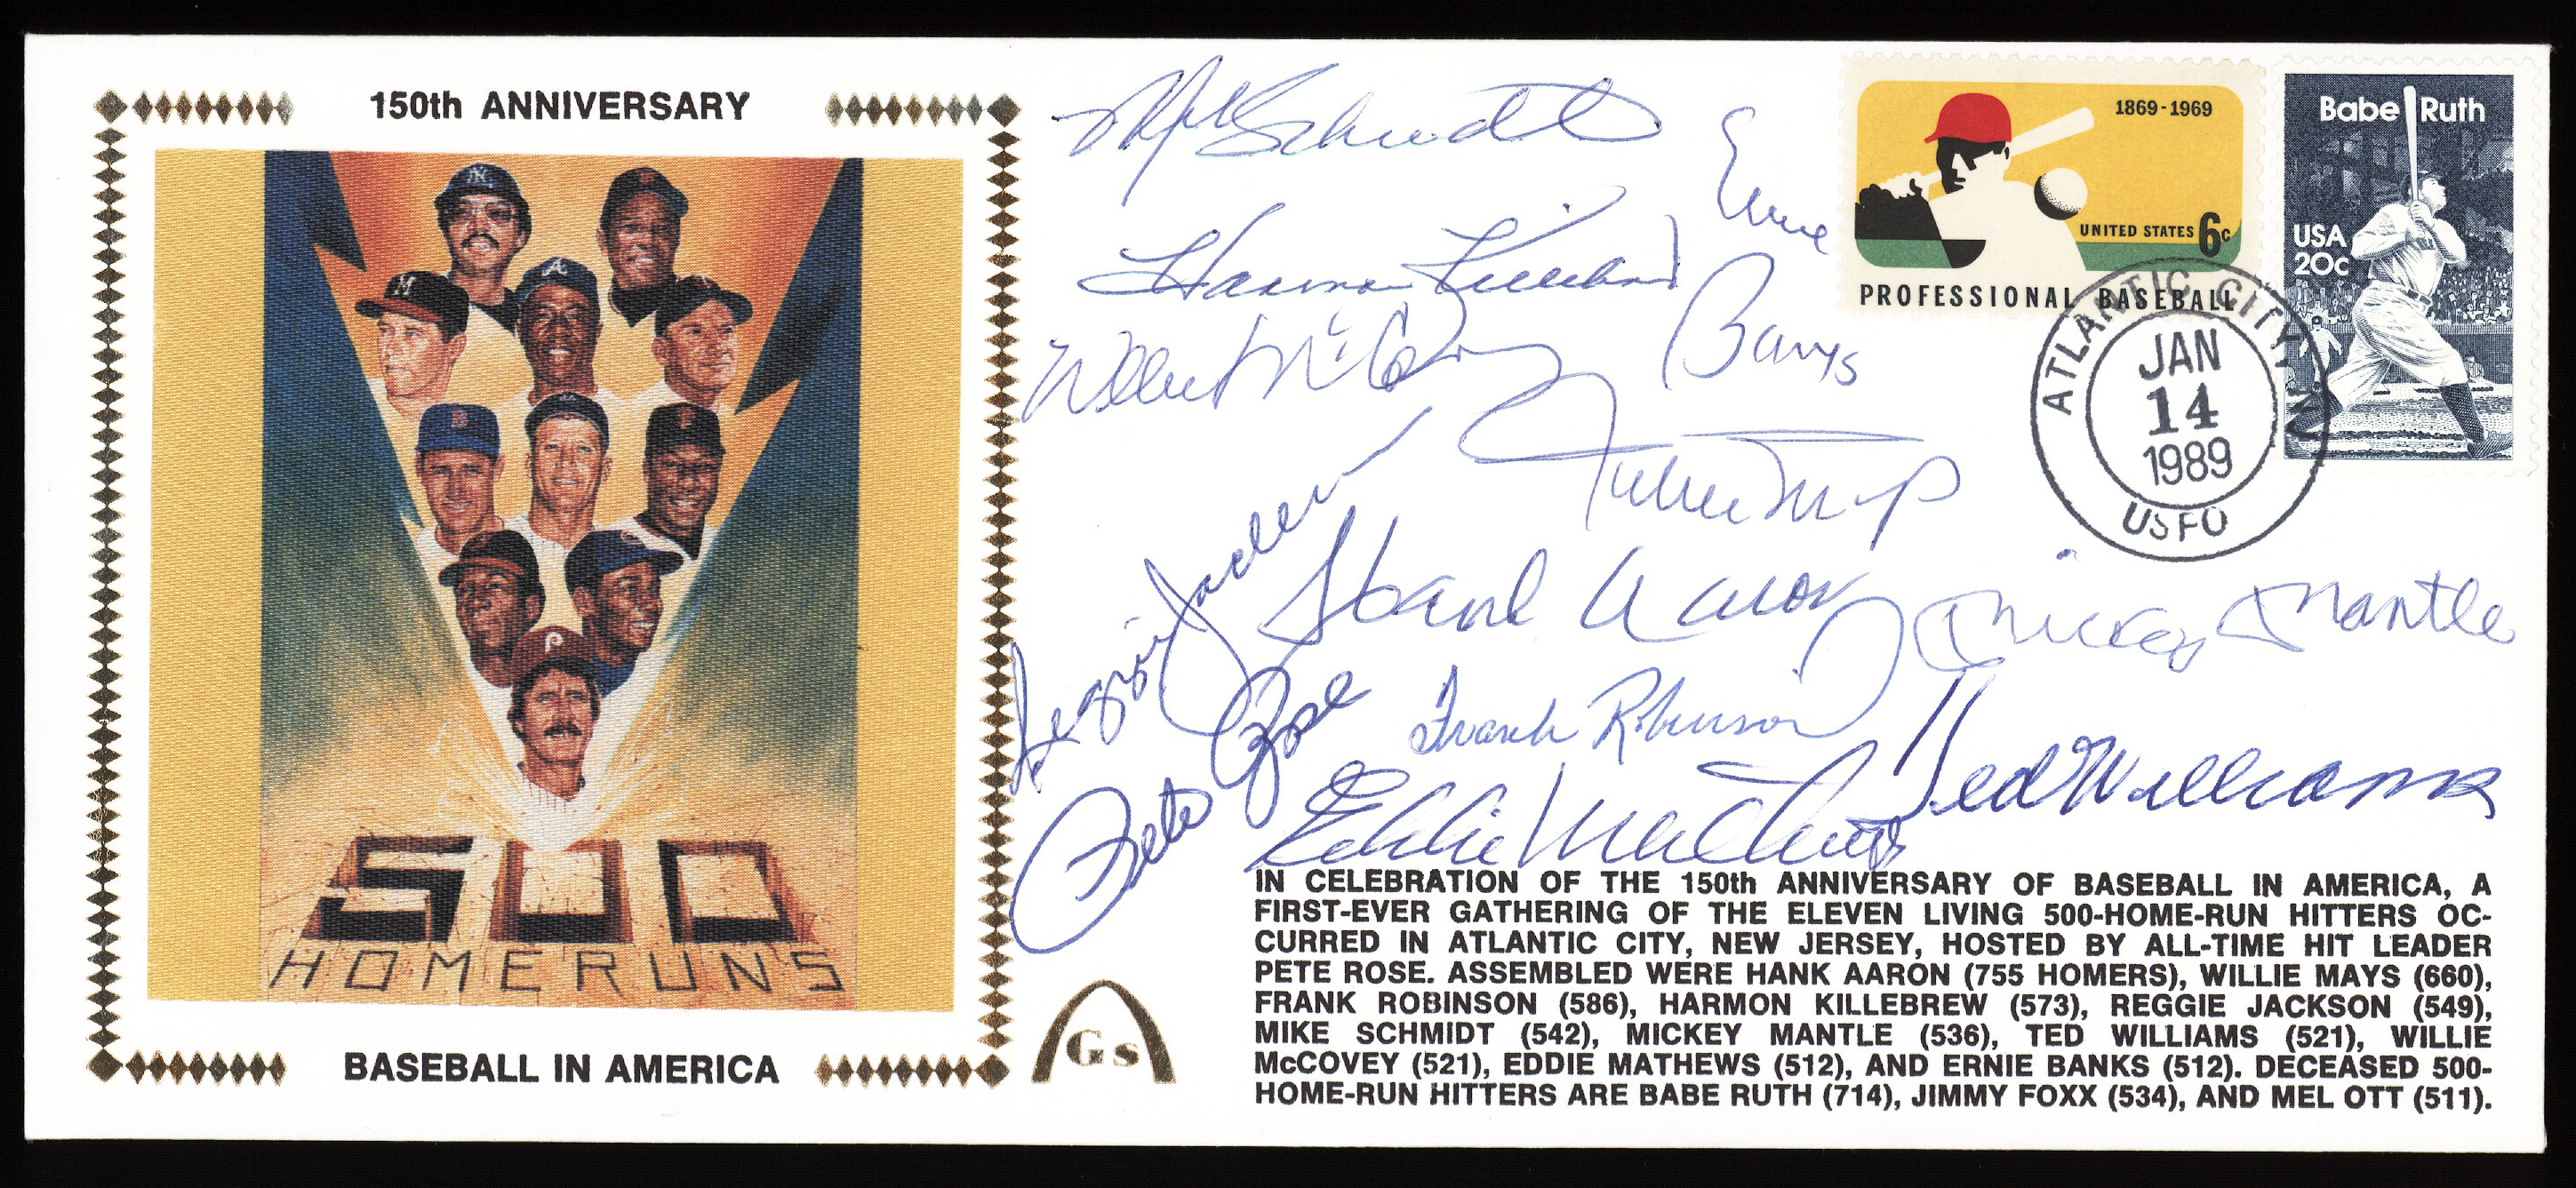 150th ANNIVERSARY
500
HOMERUNS
BASEBALL IN AMERICA
Mike Schmidt
Ernie
Banks
Harmon Killebrew
Willie McCovey
Willie Mays
Reggie Jackson
Hank Aaron
Mickey Mantle
Pete Rose
Frank Robinson
Ted Williams
Eddie Mathews
1869-1969
UNITED STATES 6c
PROFESSIONAL BASEBALL
Babe Ruth
USA
20c
ATLANTIC CITY NJ
JAN
14
1989
USPO
GS
IN CELEBRATION OF THE 150th ANNIVERSARY OF BASEBALL IN AMERICA, A
FIRST-EVER GATHERING OF THE ELEVEN LIVING 500-HOME-RUN HITTERS OC-
CURRED IN ATLANTIC CITY, NEW JERSEY, HOSTED BY ALL-TIME HIT LEADER
PETE ROSE. ASSEMBLED WERE HANK AARON (755 HOMERS), WILLIE MAYS (660),
FRANK ROBINSON (586), HARMON KILLEBREW (573), REGGIE JACKSON (549),
MIKE SCHMIDT (542), MICKEY MANTLE (536), TED WILLIAMS (521), WILLIE
McCOVEY (521), EDDIE MATHEWS (512), AND ERNIE BANKS (512). DECEASED 500-
HOME-RUN HITTERS ARE BABE RUTH (714), JIMMY FOXX (534), AND MEL OTT (511).